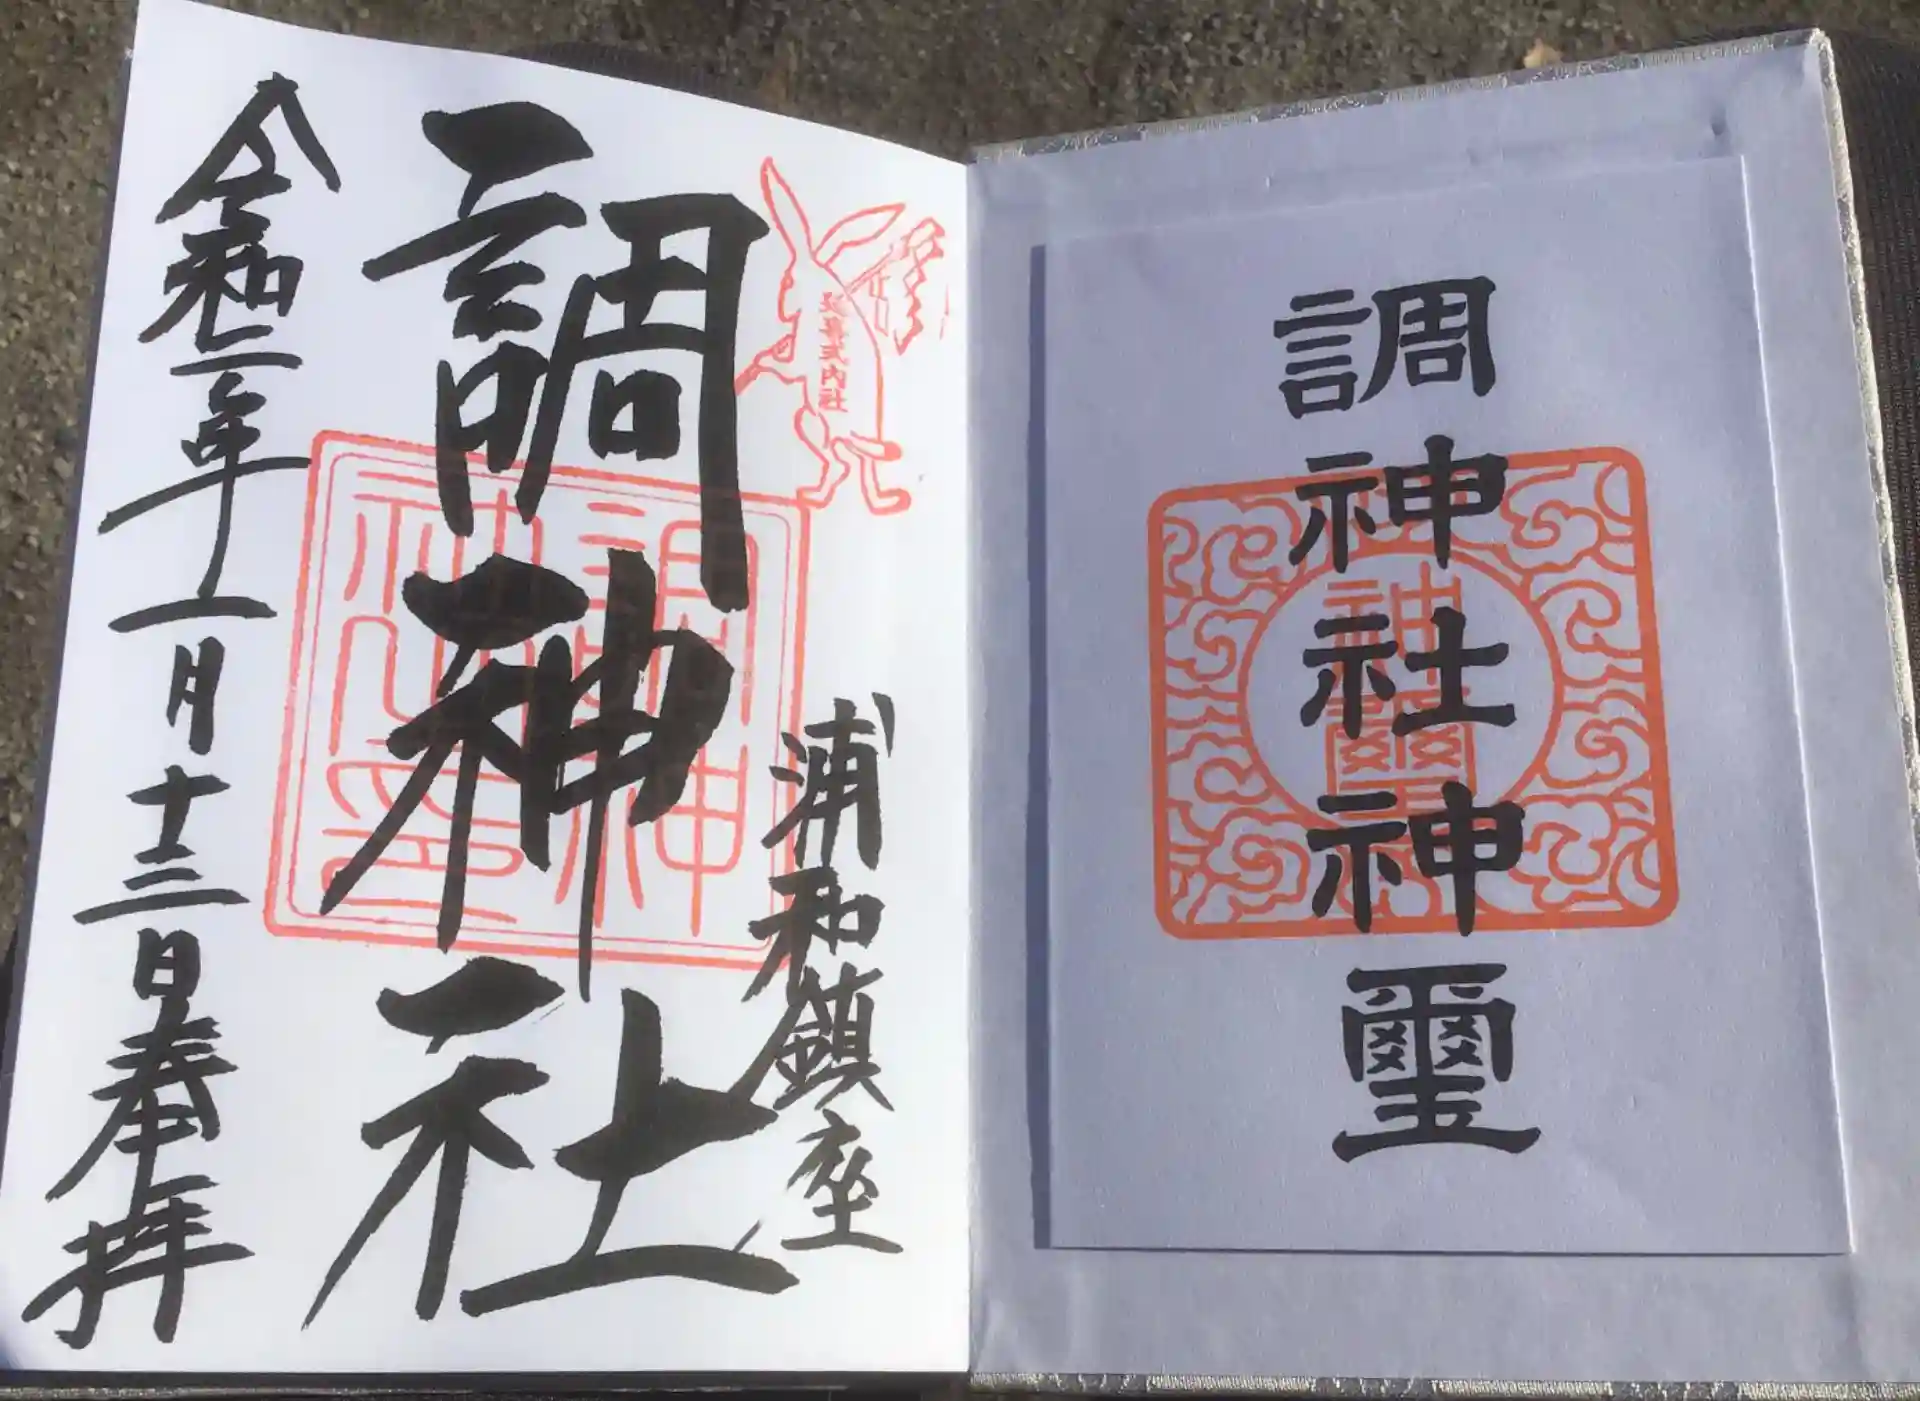 調神社神璽
神璽
延喜式内社
浦和鎮座
調神社
調神社之印
令和二年十一月十三日奉拝